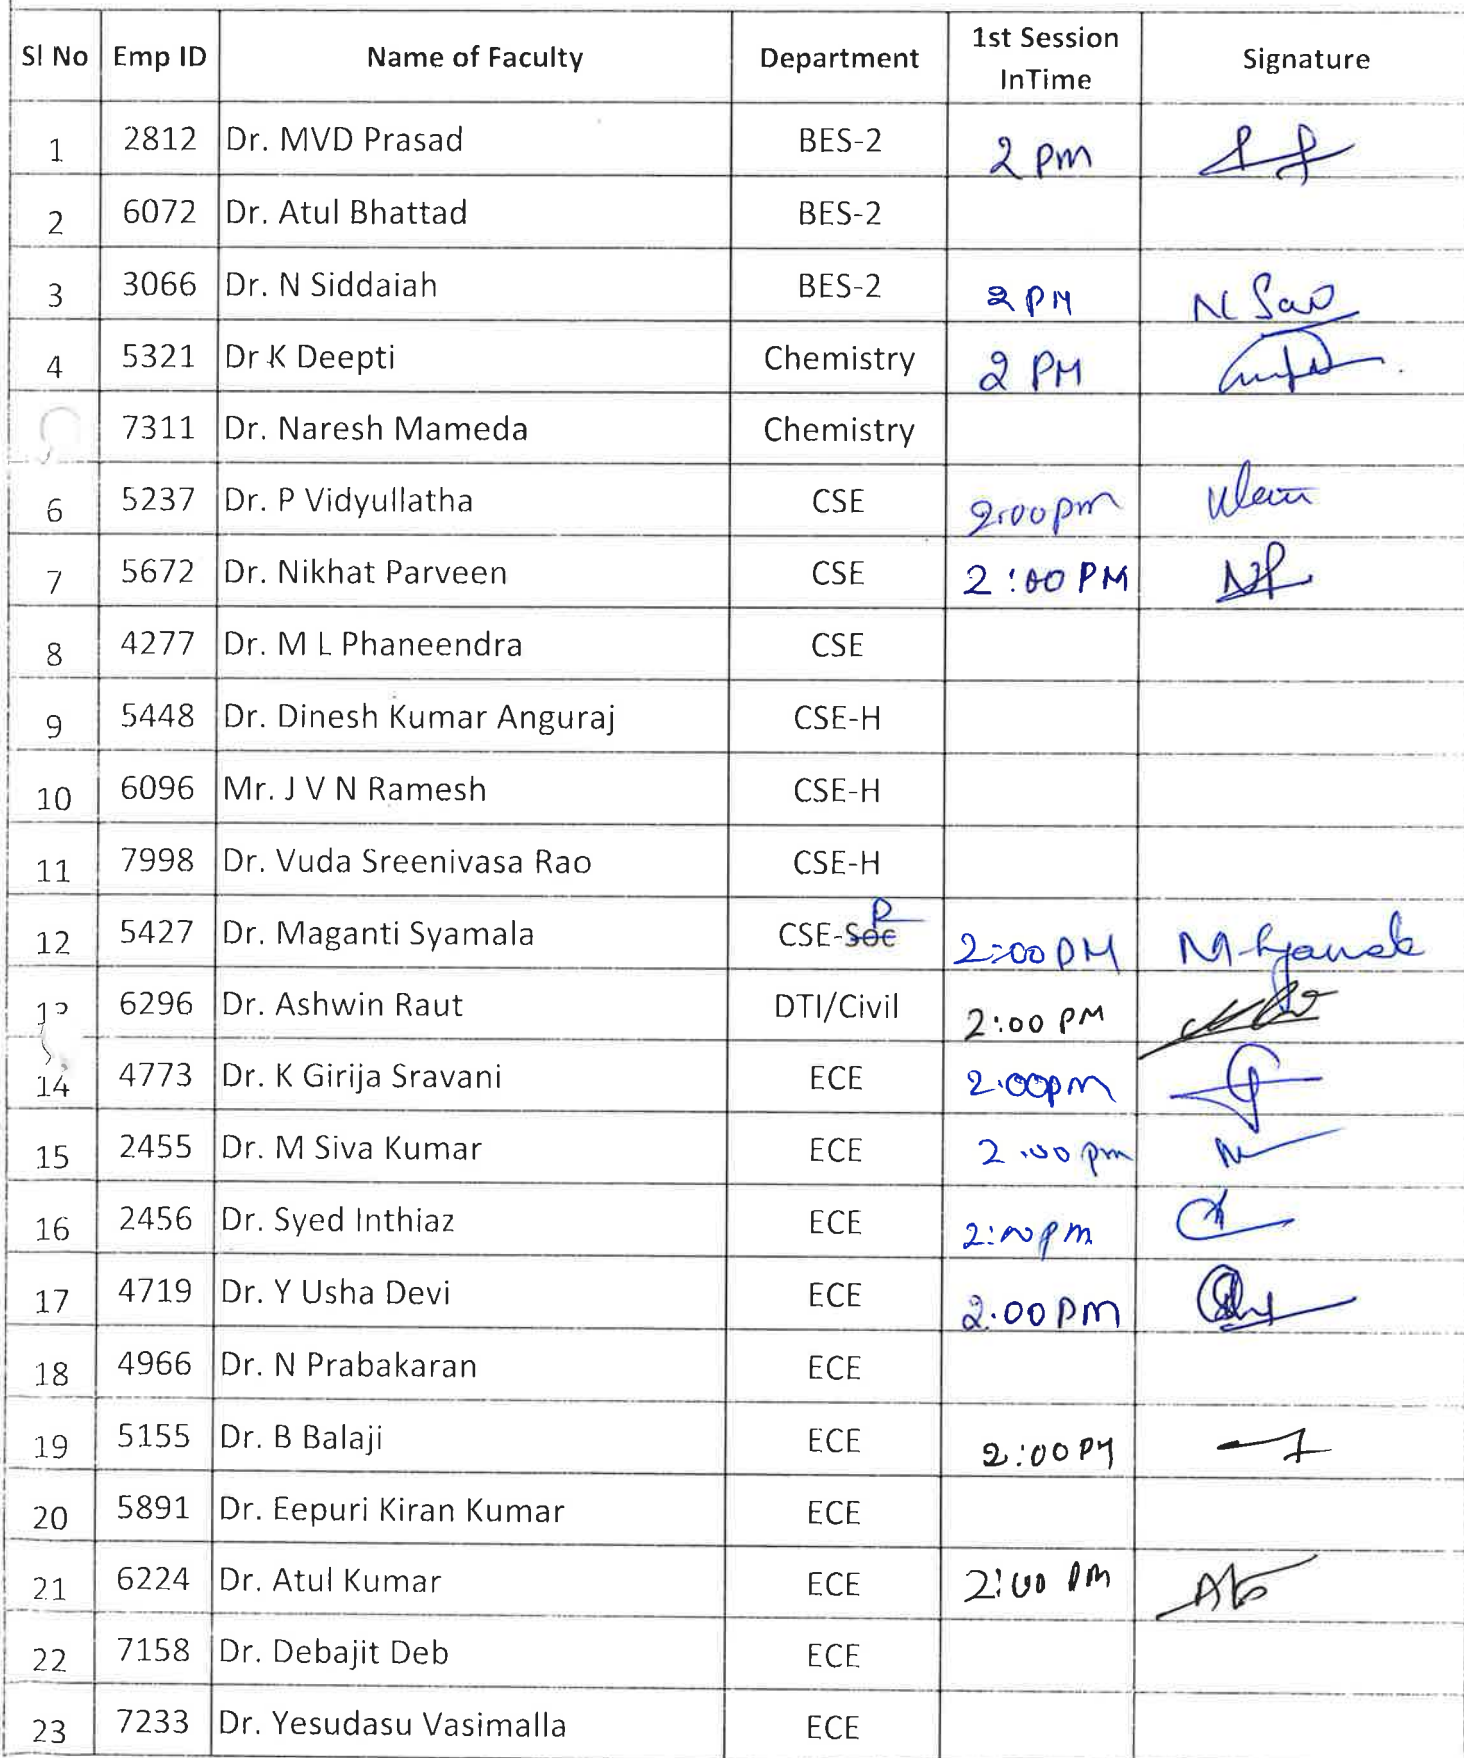 Sl No Emp ID Name of Faculty Department 1st Session InTime Signature
1 2812 Dr. MVD Prasad BES-2 2 pm
2 6072 Dr. Atul Bhattad BES-2
3 3066 Dr. N Siddaiah BES-2 2 PM
4 5321 Dr K Deepti Chemistry 2 PM
7311 Dr. Naresh Mameda Chemistry
6 5237 Dr. P Vidyullatha CSE 2:00pm
7 5672 Dr. Nikhat Parveen CSE 2:00 PM
8 4277 Dr. M L Phaneendra CSE
9 5448 Dr. Dinesh Kumar Anguraj CSE-H
10 6096 Mr. J V N Ramesh CSE-H
11 7998 Dr. Vuda Sreenivasa Rao CSE-H
12 5427 Dr. Maganti Syamala CSE- 2:00 PM
13 6296 Dr. Ashwin Raut DTI/Civil 2:00 PM
14 4773 Dr. K Girija Sravani ECE 2.00pm
15 2455 Dr. M Siva Kumar ECE 2.00 pm
16 2456 Dr. Syed Inthiaz ECE 2:00pm
17 4719 Dr. Y Usha Devi ECE 2.00 pm
18 4966 Dr. N Prabakaran ECE
19 5155 Dr. B Balaji ECE 2:00 PM
20 5891 Dr. Eepuri Kiran Kumar ECE
21 6224 Dr. Atul Kumar ECE 2:00 PM
22 7158 Dr. Debajit Deb ECE
23 7233 Dr. Yesudasu Vasimalla ECE